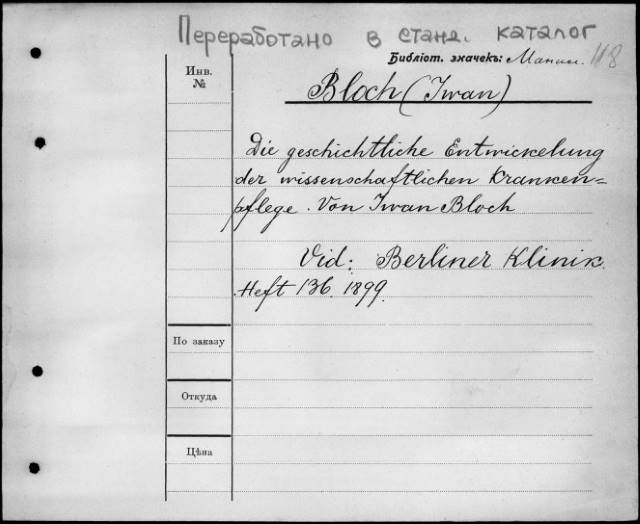 Переработано в станд. каталог
Библіот. значекъ: 118
Инв. №
Bloch (Iwan)
Die geschichtliche Entwickelung
der wissenschaftlichen Kranken=
pflege. Von Iwan Bloch
Vid: Berliner Klinik.
Heft 136. 1899.
По заказу
Откуда
Цѣна